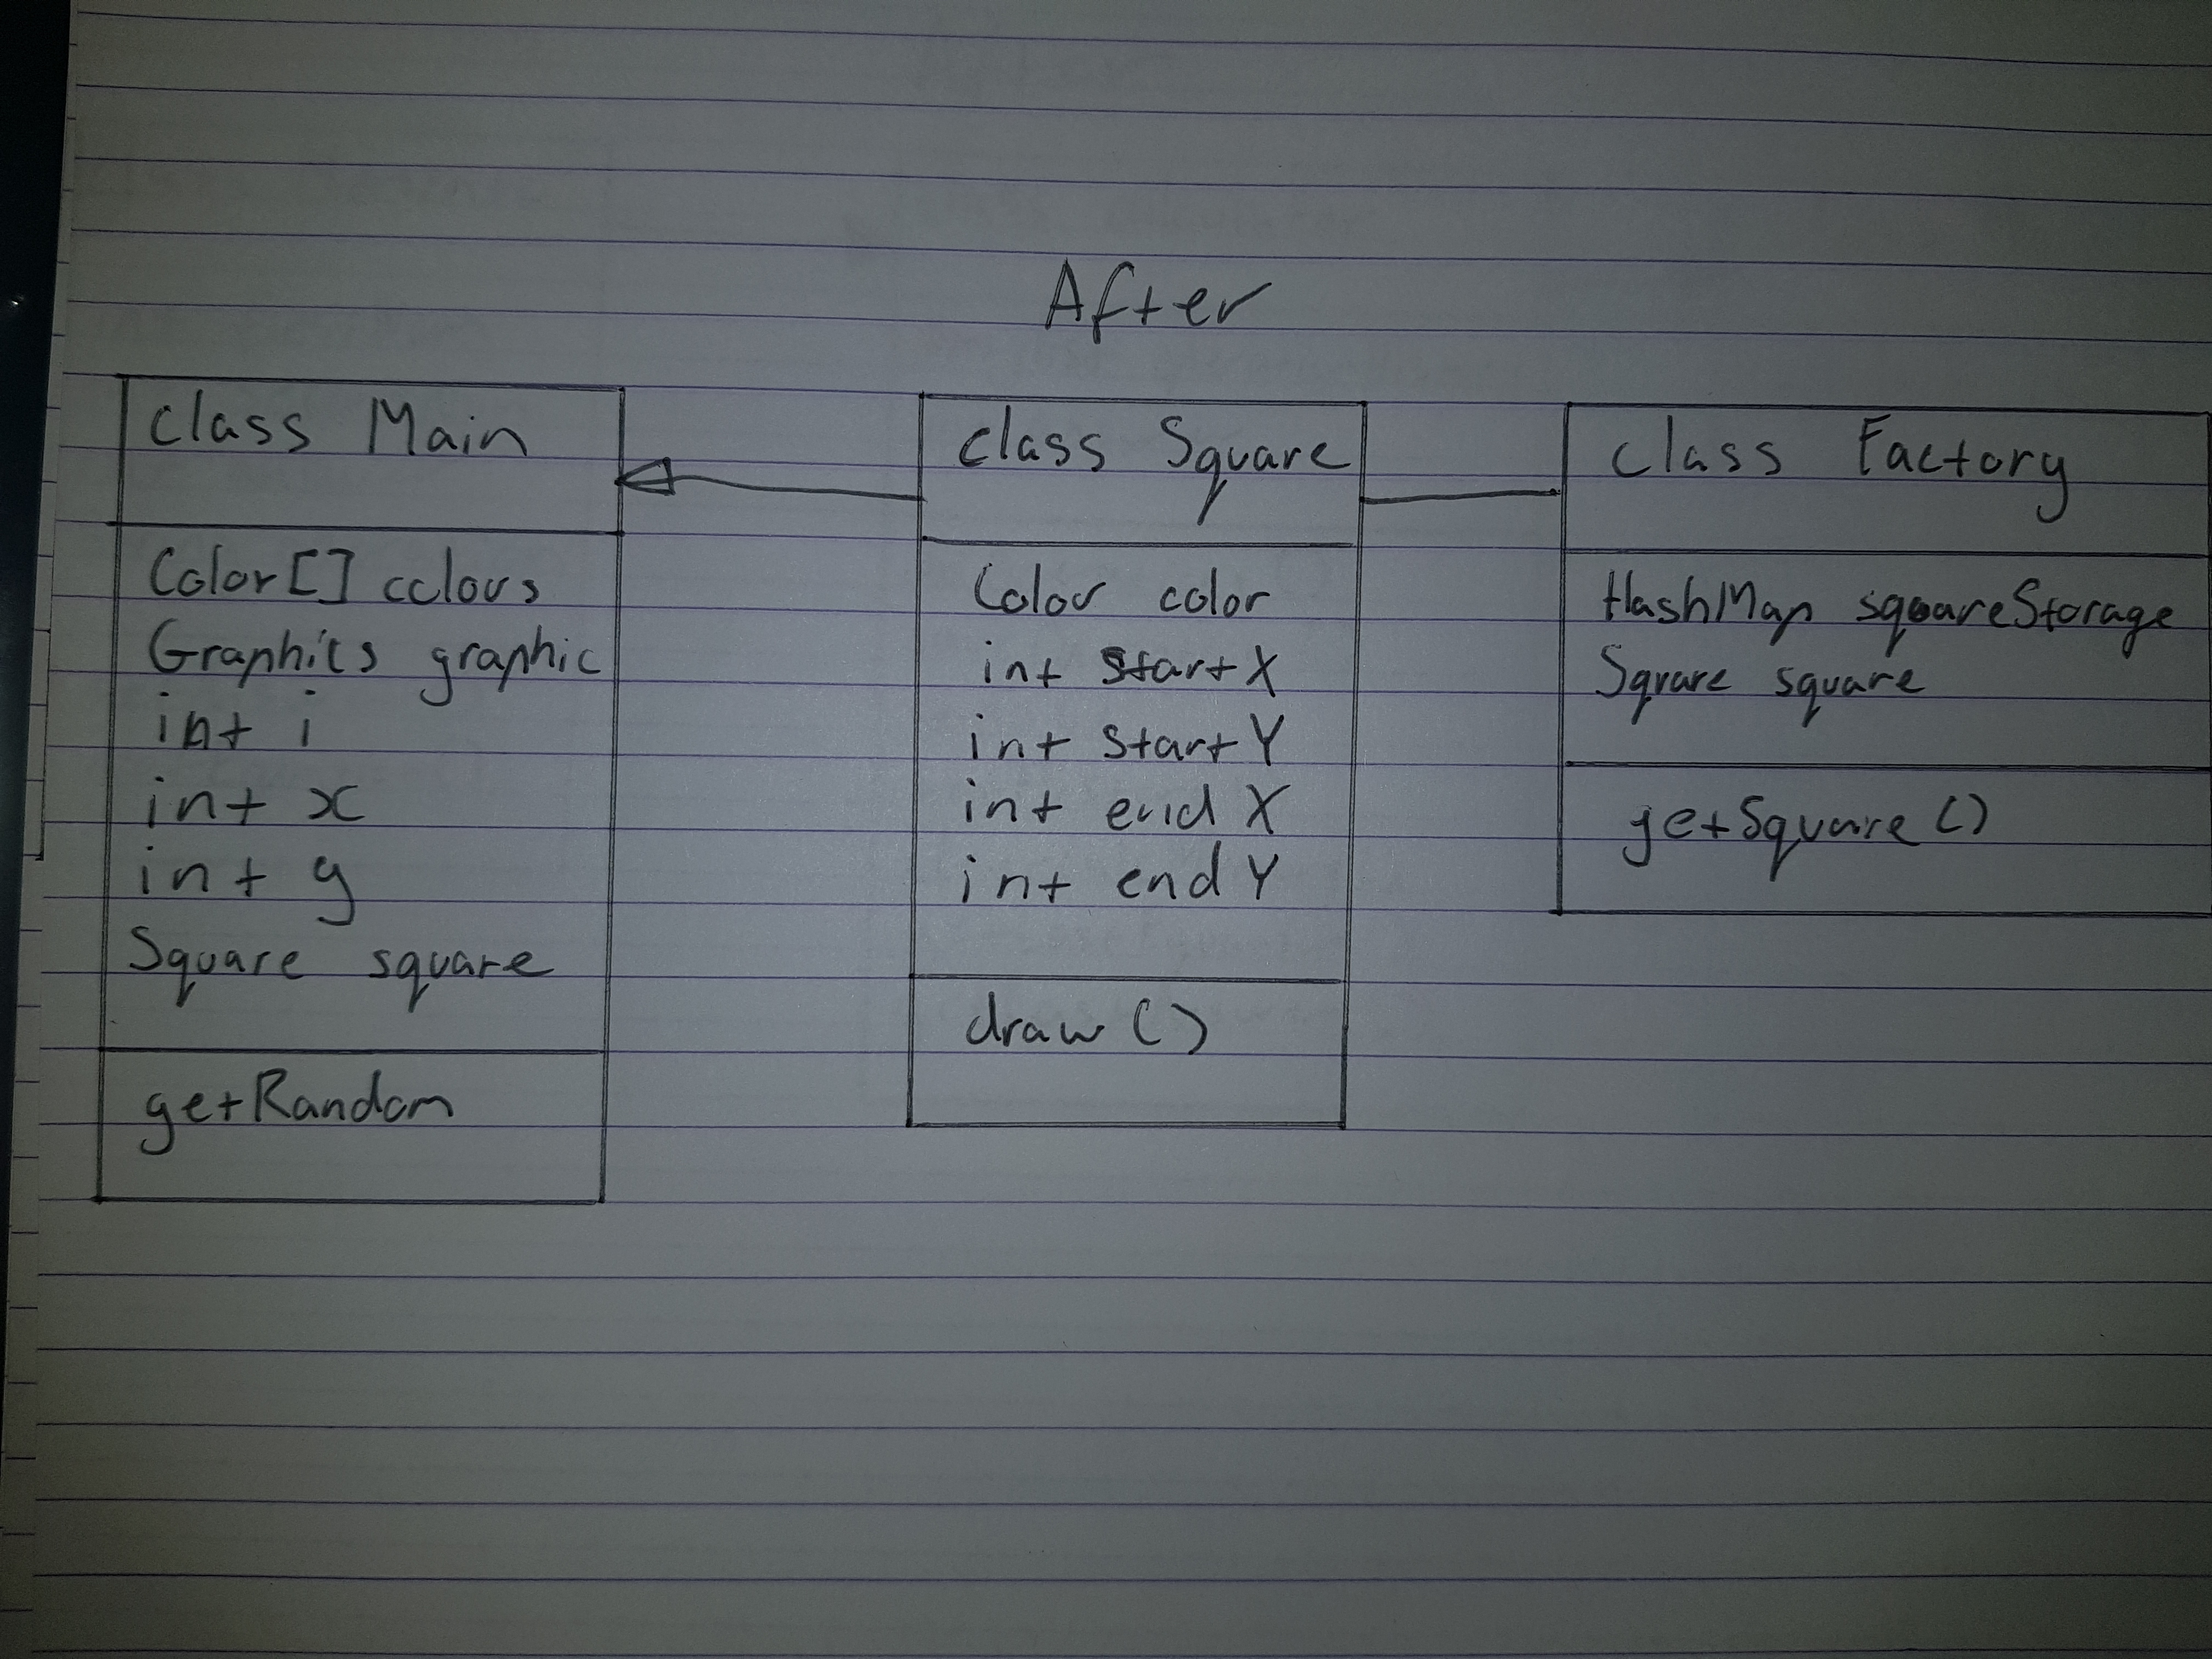 After
class Main
Color[] colours
Graphics graphic
int i
int x
int y
Square square
getRandom
class Square
Color color
int startX
int startY
int endX
int endY
draw()
class Factory
HashMap squareStorage
Square square
getSquare()